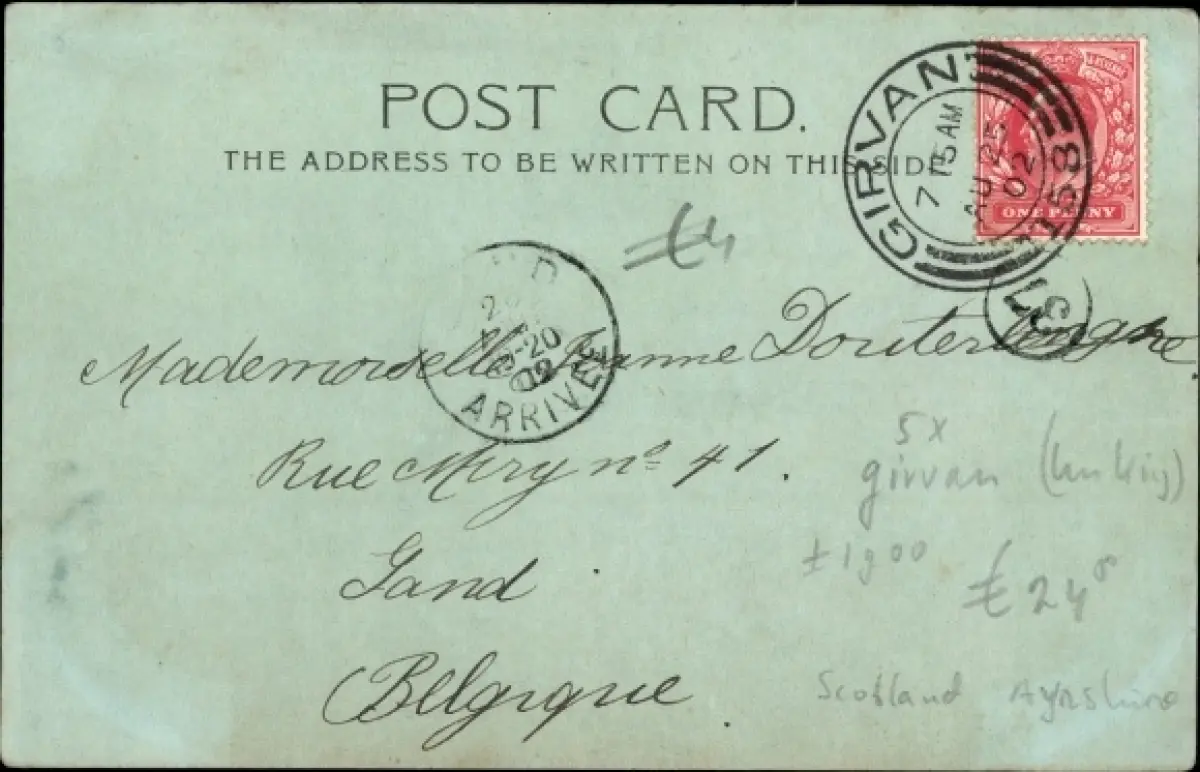 POST CARD.
THE ADDRESS TO BE WRITTEN ON THIS SIDE
GIRVAN
7 15 AM
AU 25
02
158
ONE PENNY
37
20
02
ARRIVÉE
Mademoiselle Jeanne
Rue Méry nº 41.
Gand
Belgique
5x
girvan
± 1900
£24
Scotland Ayrshire